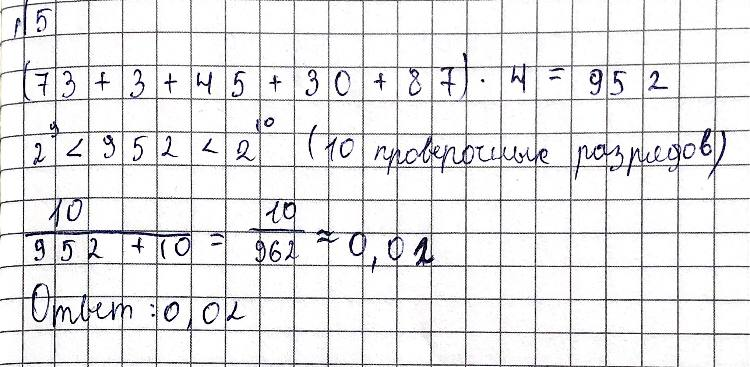 №5
(73 + 3 + 45 + 30 + 87) · 4 = 952
2⁹ < 952 < 2¹⁰ (10 проверочных разрядов)
10/(952 + 10) = 10/962 ≈ 0,02
Ответ: 0,02